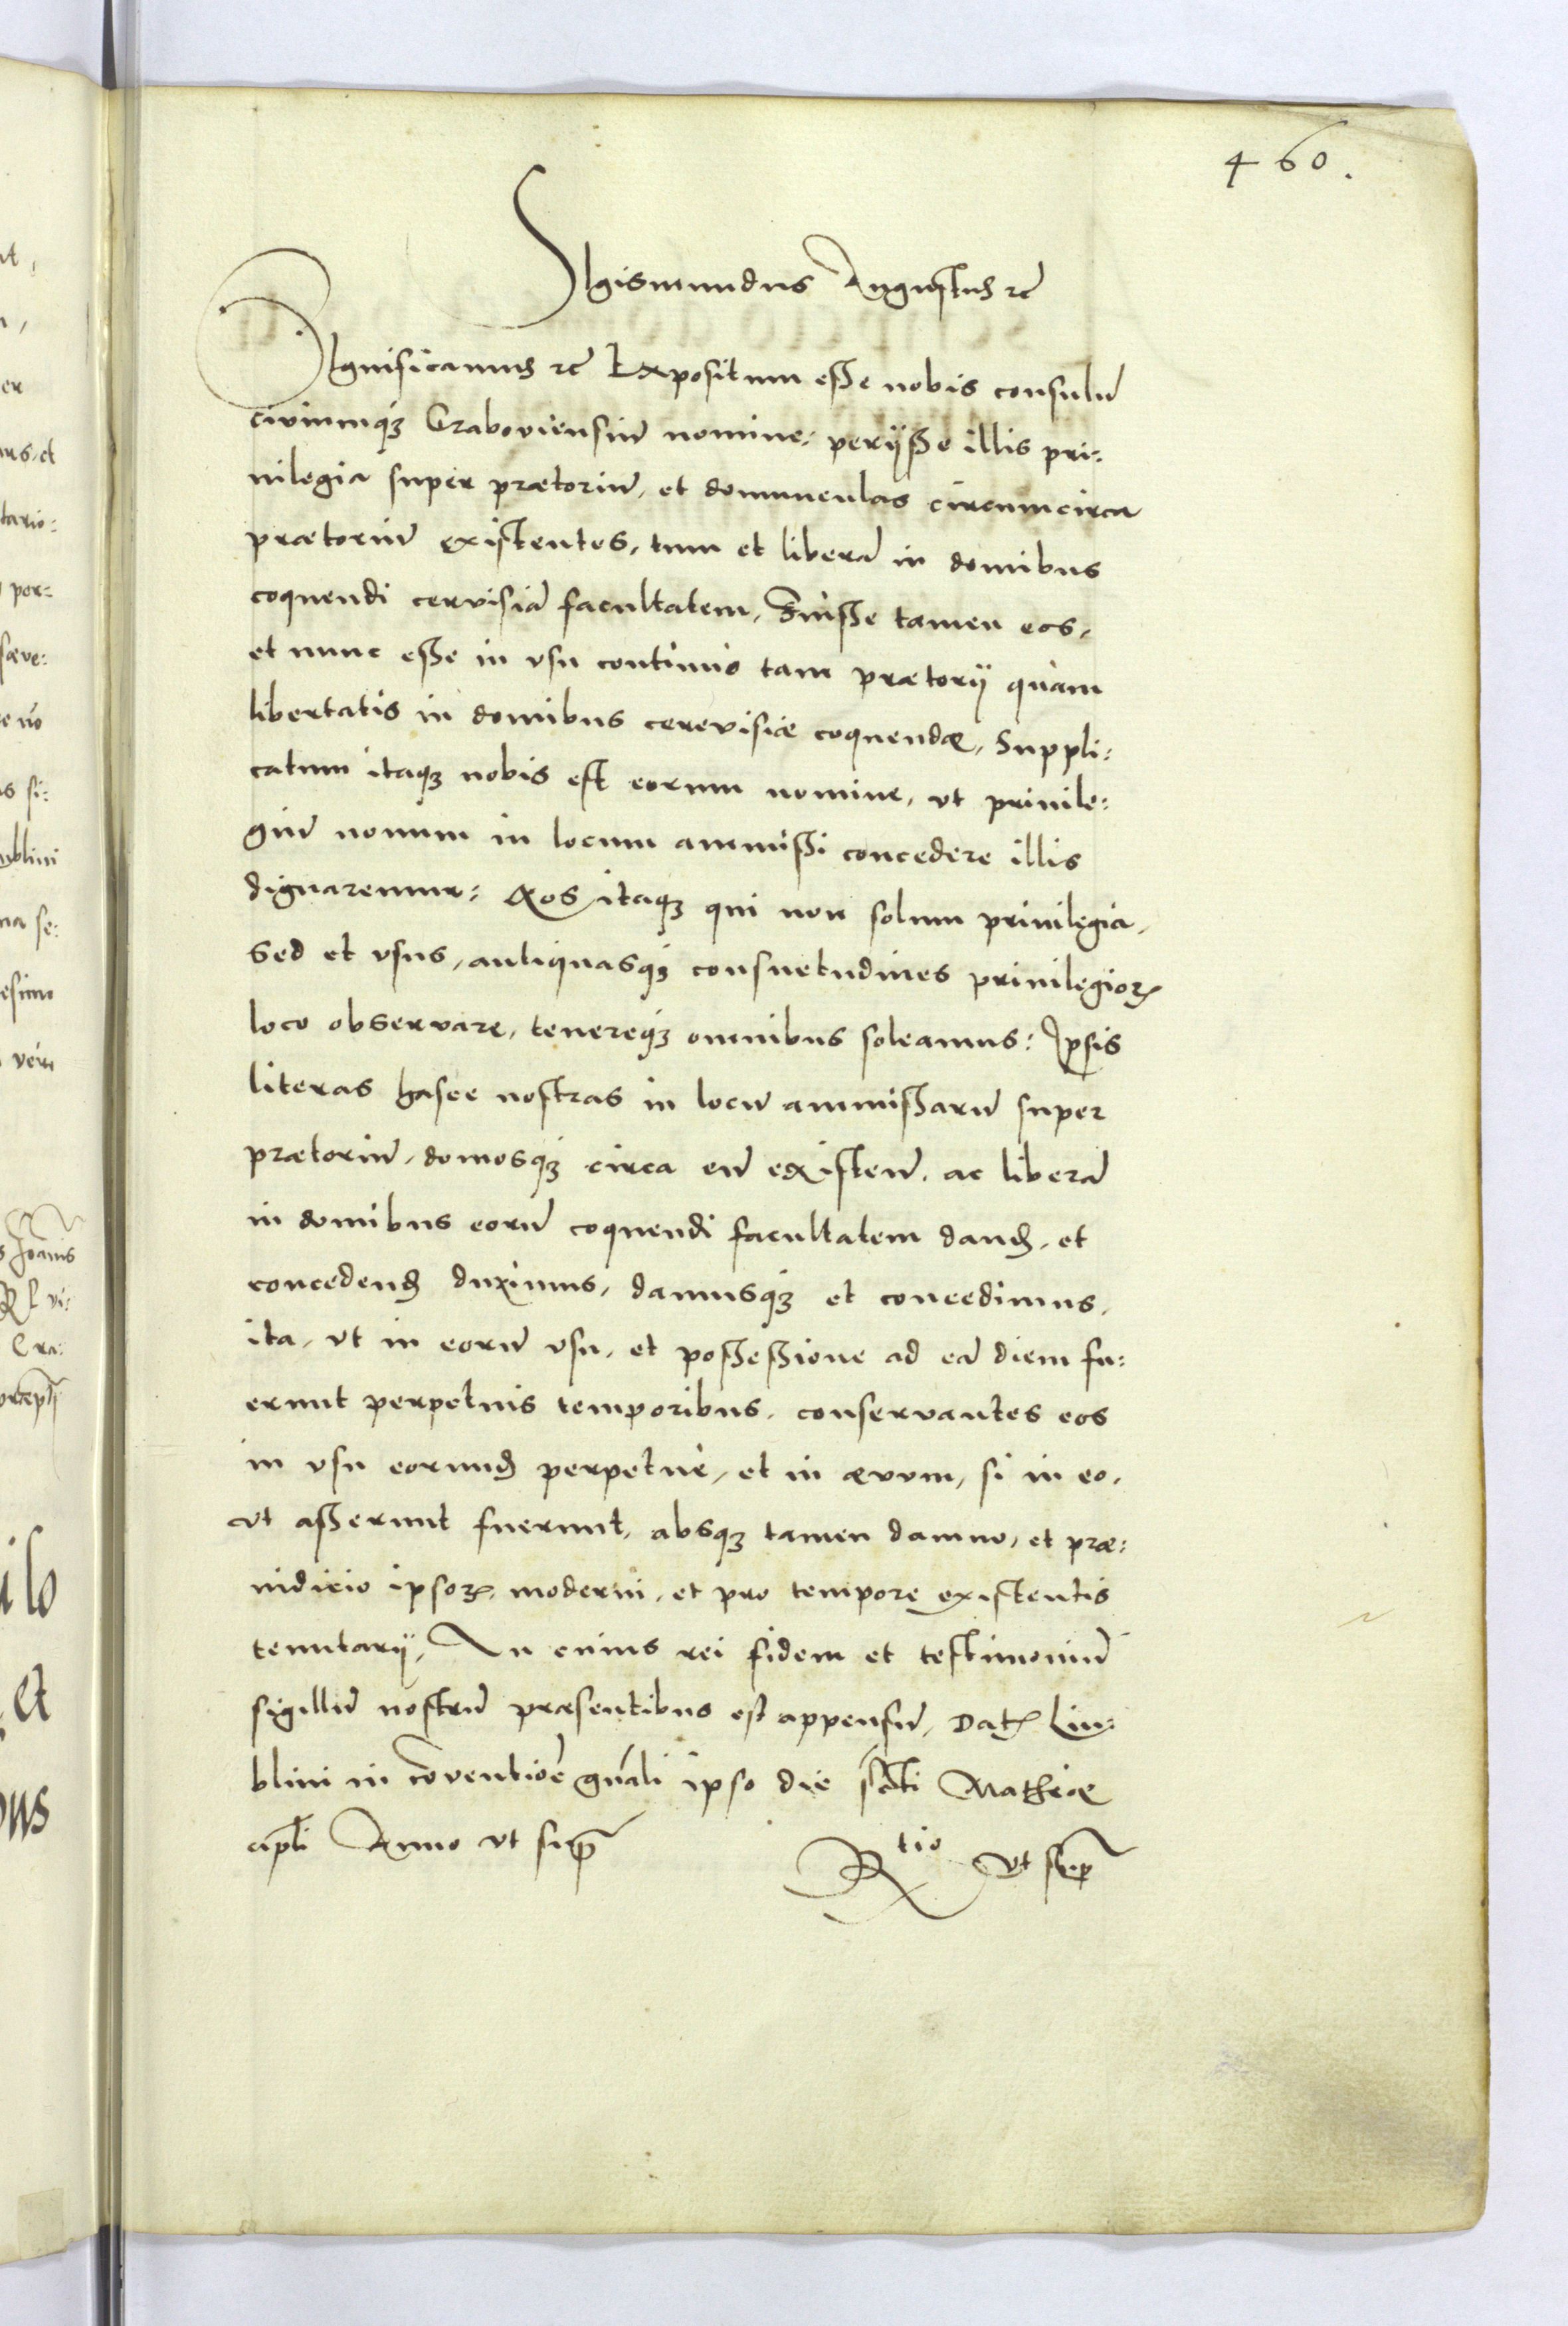 460.
SIgismundus Augustus etc
SIgnificamus etc Expositum esse nobis consulū
civiumq; Graboviensiū nomine: perijsse illis pri:
uilegia super prætoriū, et domunculas circumcirca
prætoriū existentes, tum et liberā in domibus
coquendi cervisiā facultatem, Fuisse tamen eos,
et nunc esse in vsu continuo tam prætorij quàm
libertatis in domibus cerevisiæ coquendæ, Suppli:
catum itaq; nobis est eorum nomine, vt priuile:
giū nouum in locum ammissi concedere illis
dignaremur: Nos itaq; qui non solum priuilegia,
Sed et vsus, antiquasq; consuetudines priuilegioꝝ
loco observare, tenereq; omnibus soleamus: Ipsis
literas hasce nostras in locū ammissarū super
prætoriū, domosq; circa eū existen̄, ac liberā
in domibus eorū coquendi facultatem dand, et
concedend duximus, damusq; et concedimus,
ita, vt in eorū vsu, et possessione ad eā diem fu:
erunt perpetuis temporibus, conservantes eos
in vsu eorund perpetuè, et in ævum, si in eo,
vt asserunt fuerunt, absq; tamen damno, et præ:
iudicio ipsoꝝ, moderni, et pro tempore existentis
tenutarij, In cuius rei fidem et testimoniū
sigillū nostrū præsentibus est appensū, Datꝭ Lu:
blini in cōventiōe gn̄ali ipso die scti Mathiæ
apli Anno vt supᷓ
Rtio vt supᷓ